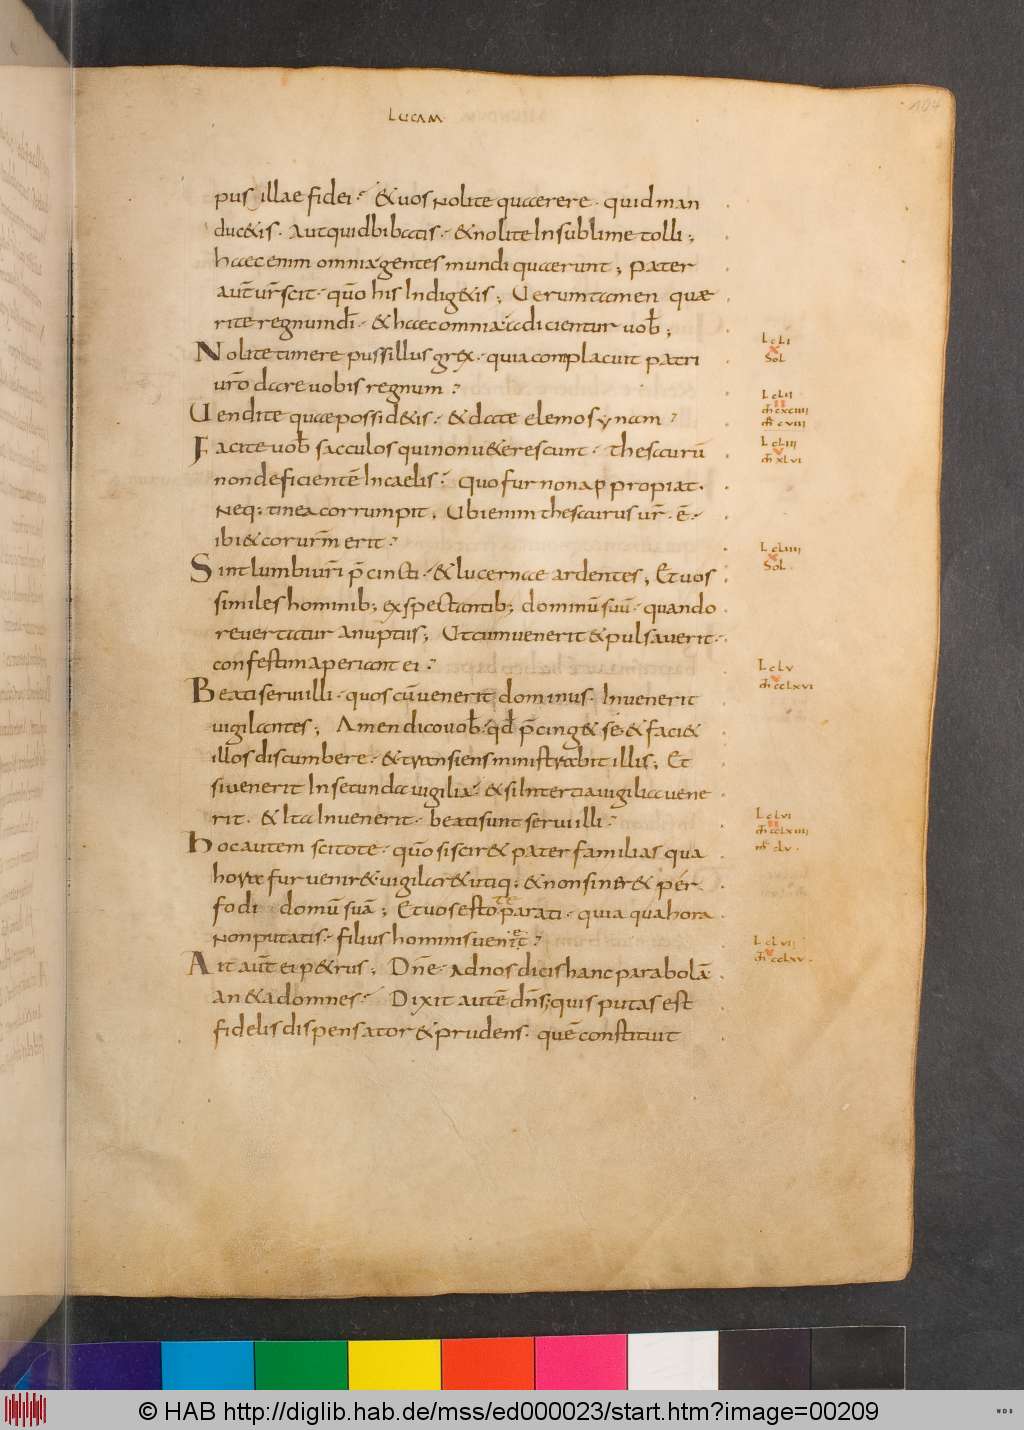 LUCAM
104
pusillae fidei · & vos nolite quaerere · quid man
duc&is · Aut quid bibatis · & nolite In sublime tolli ;
haec enim omnia gentes mundi quaerunt ; pater
aut̄ ur̄ scit · quō his Indig&is ; Uerum tamen quae
rite regnum dī · & haec omnia adicientur uob̄ ;
Nolite timere pussillus grex · quia complacuit patri
uro dare uobis regnum ?
Uendite quae possid&is · & date elemosynam ?
Facite uob̄ sacculos qui non u&erescunt · thesaurū
non deficientē In caelis · Quo fur non appropiat ·
Neq; tinea corrumpit . Ubi enim thesaurus ur̄ · ē ·
ibi & cor urm̄ erit ?
Sint lumbi uri p̄cincti · & lucernae ardentes ; Et uos
similes hominib; exspectantib; dominū suū · quando
reuertatur a nuptiis ; Ut cum uenerit & pulsauerit ·
confestim aperiant ei ?
Beati serui illi · quos cū uenerit dominus · Inuenerit
uigilantes ; Amen dico uob̄ · qd̄ p̄cing& se · & faci&
illos discumbere · & transiens ministrabit illis ; Et
si uenerit In secunda uigilia · & si In tertia uigilia uene
rit · & Ita Inuenerit · beati sunt serui illi ?
Hoc autem scitote · quō si scir& pater familias qua
hora fur uenir& uigilar& utiq; · & non siner& per
fodi domū suā ; Et uos estote parati · quia qua hora
Non putatis · filius hominis uenit ?
Ait aut̄ ei p&rus ; Dn̄e · Ad nos dicis hanc parabolā
An & ad omnes · Dixit autē dn̄s ; quis putas est
fidelis dispensator & prudens · quē constituit
L cLI
X
Sol
L cLII
II
m̄ cxciiii
m̄r cviii
L cLIII
V
m̄ xLvi
L cLIIII
X
Sol .
L cLv
V
m̄ ccLxvi
L cLvi
II
m̄ ccLxiiii
mr̄ cLv .
L cLvii
V
m̄ ccLxv .
© HAB http://diglib.hab.de/mss/ed000023/start.htm?image=00209
WDB